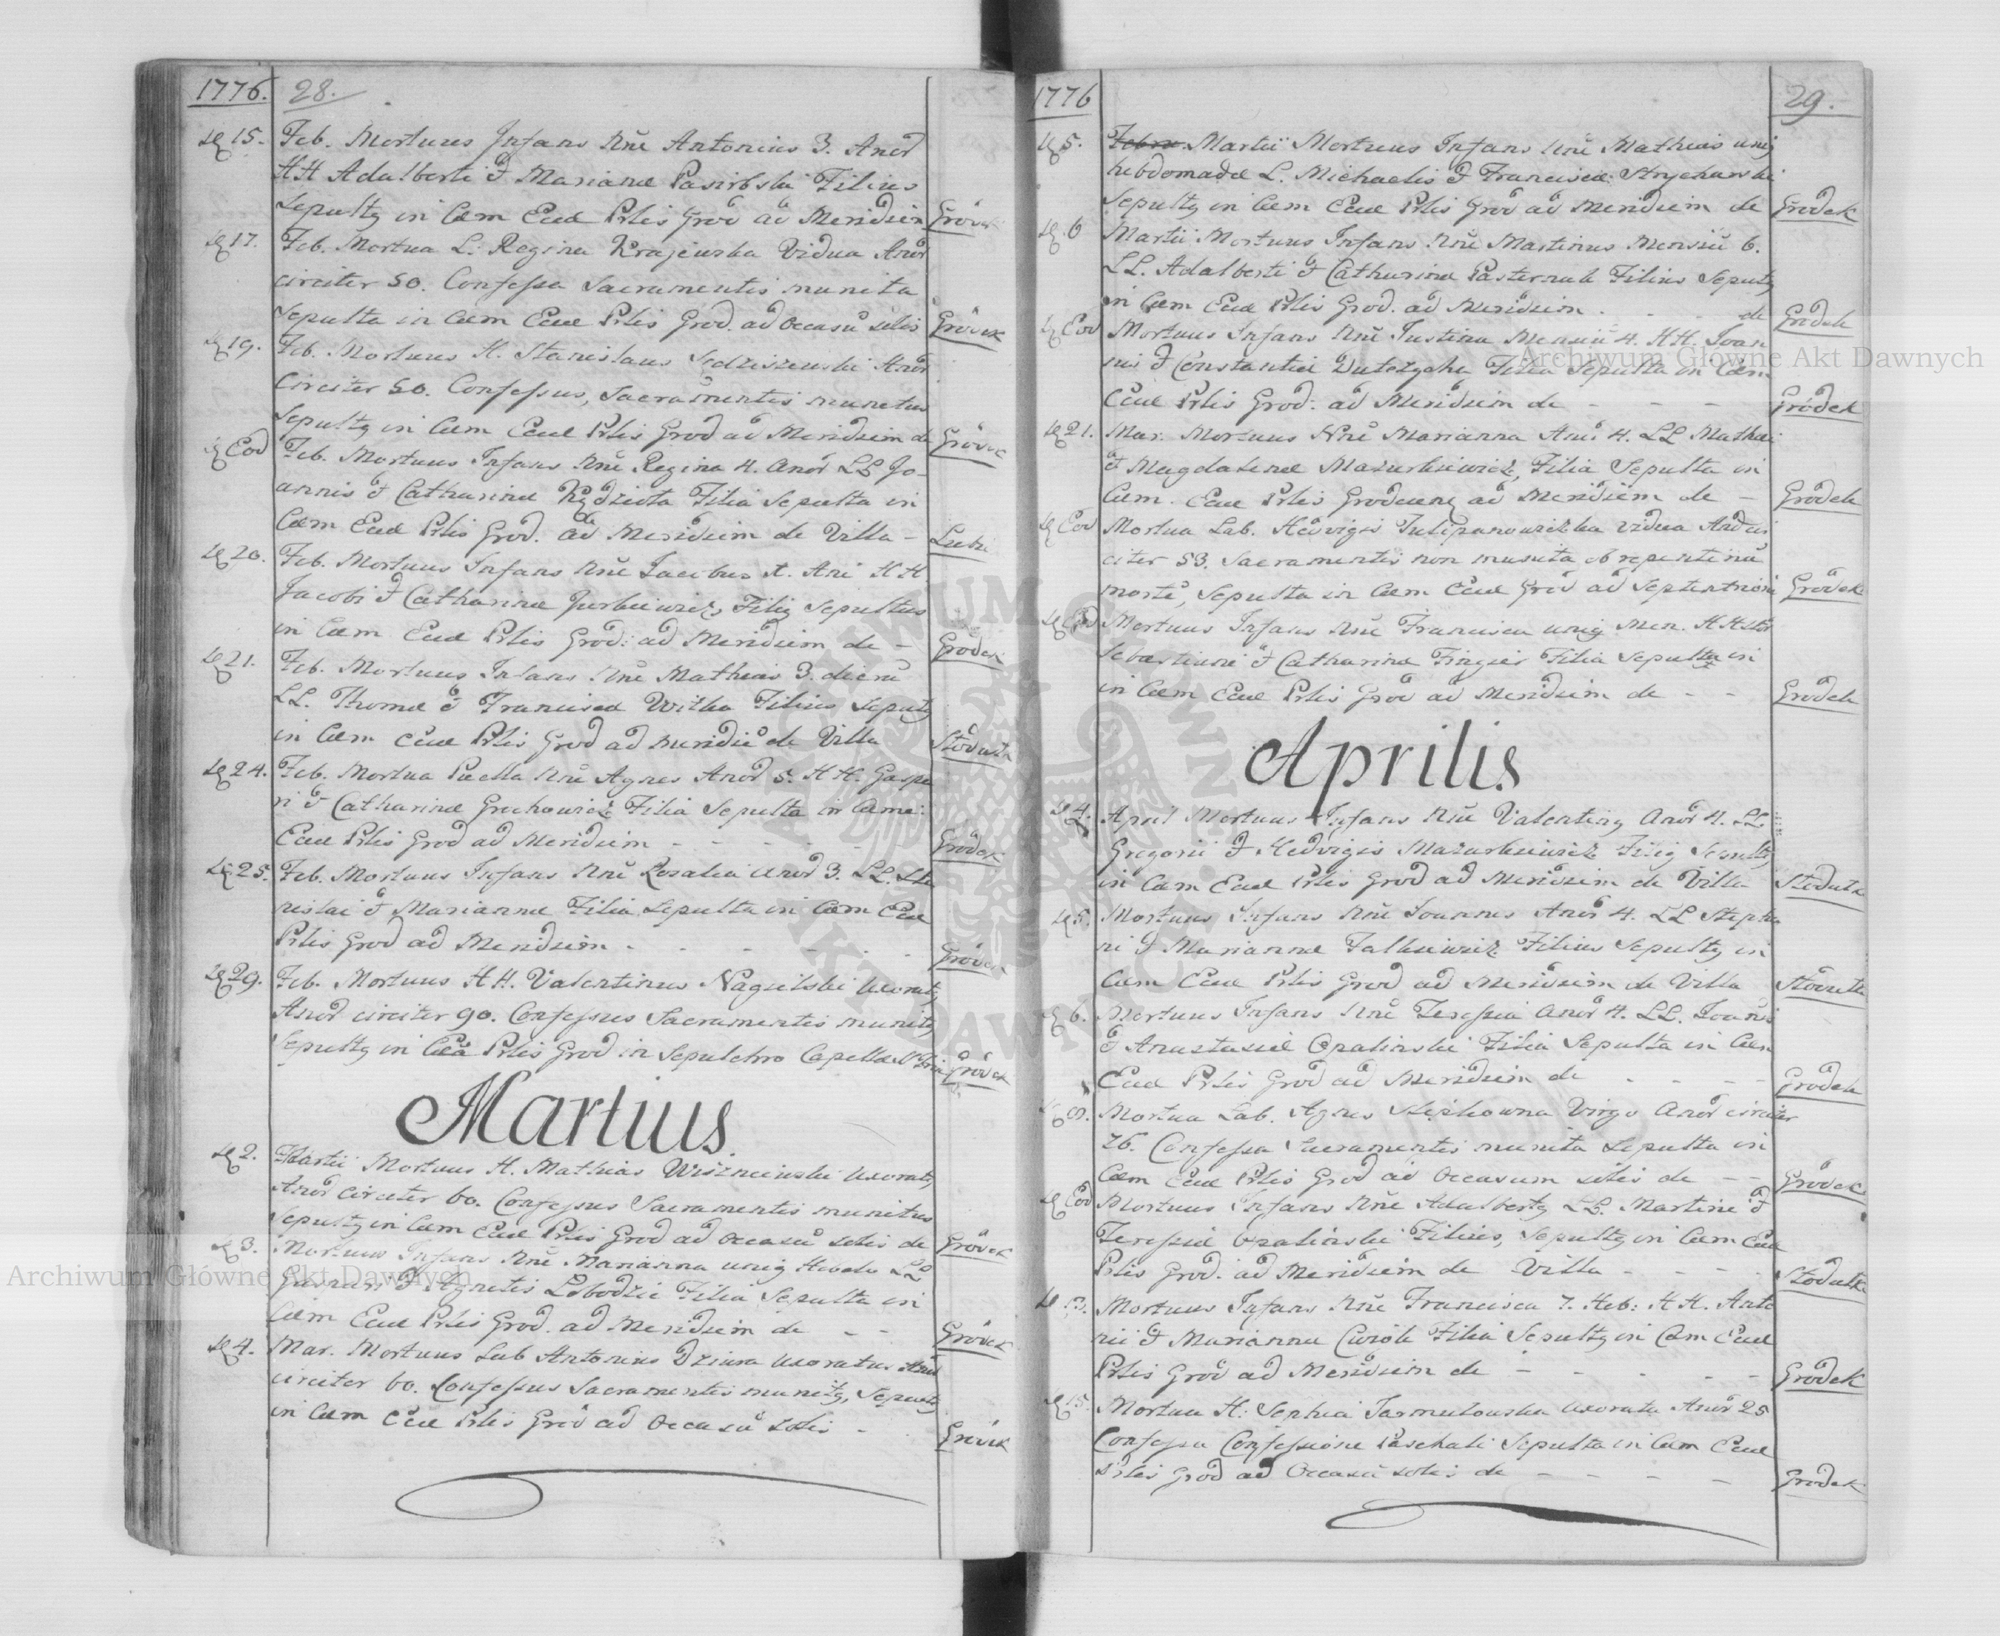 1776. 28.
D 15. Feb. Mortuus Infans Nne Antonius 3. Anor
HH Adalberti et Marianae Pasirbski Filius
Sepultg in Caem Eccl Prlis Grod ad Meridiem Gròdek
D 17. Feb. Mortua L. Regina Krajewska Vidua Anor
circiter 50. Confessa Sacramentis munita
Sepulta in Caem Eccl Prlis Grod. ad occasu solis Gròdek
D 19. Feb. Mortuus H. Stanislaus Sedziszewski Anor
Circiter 50. Confessus, Sacramentis munitus
Sepultg in Caem Eccl Prlis Grod ad Meridiem de Gròdek
D Eod Feb. Mortuus Infans Nne Regina 4. Anor LL Jo-
annis et Catharinae Filia Sepulta in
Caem Eccl Prlis Grod. ad Meridiem de Villa -
D 20. Feb. Mortuus Infans Nne Jacobus Ani HH.
Jacobi et Catharinae Filig Sepultus
in Caem Eccl Prlis Grod: ad Meridiem de - Grodek
D 21. Feb. Mortuus Infans Nne Mathias 3. dieru
LL. Thomae et Francisca Witka Filius Sepultg
in Caem Eccl Prlis Grod ad meridie de Villa Stoduta
D 24. Feb. Mortua Puella Nne Agnes Anor 5. HH. Gaspe
ri et Catharinae Grechowicz Filia Sepulta in Caeme:
Eccl Prlis Grod ad Meridiem - - - Gròdek
D 25. Feb. Mortuus Infans Nne Rosalia Anor 3. LL. Sta
nislai et Mariannae Filia Sepulta in Caem Eccl
Prlis Grod ad Meridiem - - - Gròdek
D 29. Feb. Mortuus HH. Valentinus Nagielski Uxoratg
Anor circiter 90. Confessus Sacramentis munitg
Sepultg in Prlis Grod in Sepulchro Capellae Gròdek
Martius.
D 2. Martii Mortuus H. Mathias Wiszniewski Uxoratg
Anor circiter 60. Confessus Sacramentis munitus
Sepultg in Caem Eccl Prlis Grod ad occasu solis de Gròdek
D 3. Mortuus Infans Nne Marianna unig LL
Gaspari et Agnetis Lobodzic Filia Sepulta in
Caem Eccl Prlis Grod. ad Meridiem de - - Gròdek
D 4. Mar. Mortuus Lab Antonius Dziura Uxoratus Anor
circiter 60. Confessus Sacramentis munitg, Sepultg
in Caem Eccl Prlis Grod ad Occasu Solis - Gròdek
1776 29.
D 5. Martii Mortuus Infans Nne Mathias unig
hebdomadae L. Michaelis et Francisca
Sepultg in Caem Eccl Prlis Grod ad Meridiem de Grodek
D 6 Martii Mortuus Infans Nne Martinus Mensiu 6.
LL. Adalberti et Catharinae Pasternak Filius Sepultg
in Caem Eccl Prlis Grod. ad Meridiem . - - de Grodek
D Eod Mortuus Infans Nne Justina Mensiu 4. HH. Joan
nis et Constantia Filia Sepulta in Caem
Eccl Prlis Grod: ad Meridiem de - - - Grodek
D 21. Mar. Mortuus Nne Marianna Ani 4. LL Mathei
et Magdalenae Mazurkiewicz, Filia Sepulta in
Caem. Eccl Prlis Grodecenz ad Meridiem de - Grodek
D Eod Mortua Lab. Hedvigis Tulipanowiczka vidua Anor cir
citer 53. Sacramentis non munita ob repentinu
morte, Sepulta in Caem Eccl Grod ad Septentrione Gròdek
D Eod Mortuus Infans Nne Francisca unig Men. HH
Sebastiani et Catharinae Finger Filia Sepulta in
in Caem Eccl Prlis Grod ad Meridiem de - - Grodek
Aprilis
D 4. April Mortuus Infans Nne Valenting Anor 4. LL
Gregorii et Hedvigis Mazurkiewicz Filig Sepultg
in Caem Eccl Prlis Grod ad Meridiem de Villa Stoduta
D 5. Mortuus Infans Nne Joannes Anor 4. LL Stepha
ni et Mariannae Falkiewicz Filius Sepultg in
Caem Eccl Prlis Grod ad Meridiem de Villa Stoduta
D 6. Mortuus Infans Nne Teressia Anor 4. LL. Joanis
et Anastasiae Opalinski Filia Sepulta in Caem
Eccl Prlis Grod ad Meridiem de - - - Grodek
D 9. Mortua Lab. Agnes Virgo Anor circiter
26. Confessa Sacramentis munita Sepulta in
Caem Eccl Prlis Grod ad Occasum solis de - - Gròdek
D Eod Mortuus Infans Nne Adalbertg LL. Martini et
Teressiae Opalinski Filius, Sepultg in Caem Eccl
Prlis Grod. ad Meridiem de Villa - - - Stoduta
D 13. Mortuus Infans Nne Francisca 7. Heb: HH. Anto
nii et Marianna Filia Sepultg in Caem Eccl
Prlis Grod ad Meridiem de - - - Grodek
D 15. Mortua H: Sophia Jarmulowska Uxorata Anor 25
Confessa Confessione Paschali Sepulta in Caem Eccl
Prlis Grod ad Occasu solis de - - - Grodek
Archiwum Główne Akt Dawnych
Archiwum Główne Akt Dawnych
ARCHIWUM GŁÓWNE AKT DAWNYCH